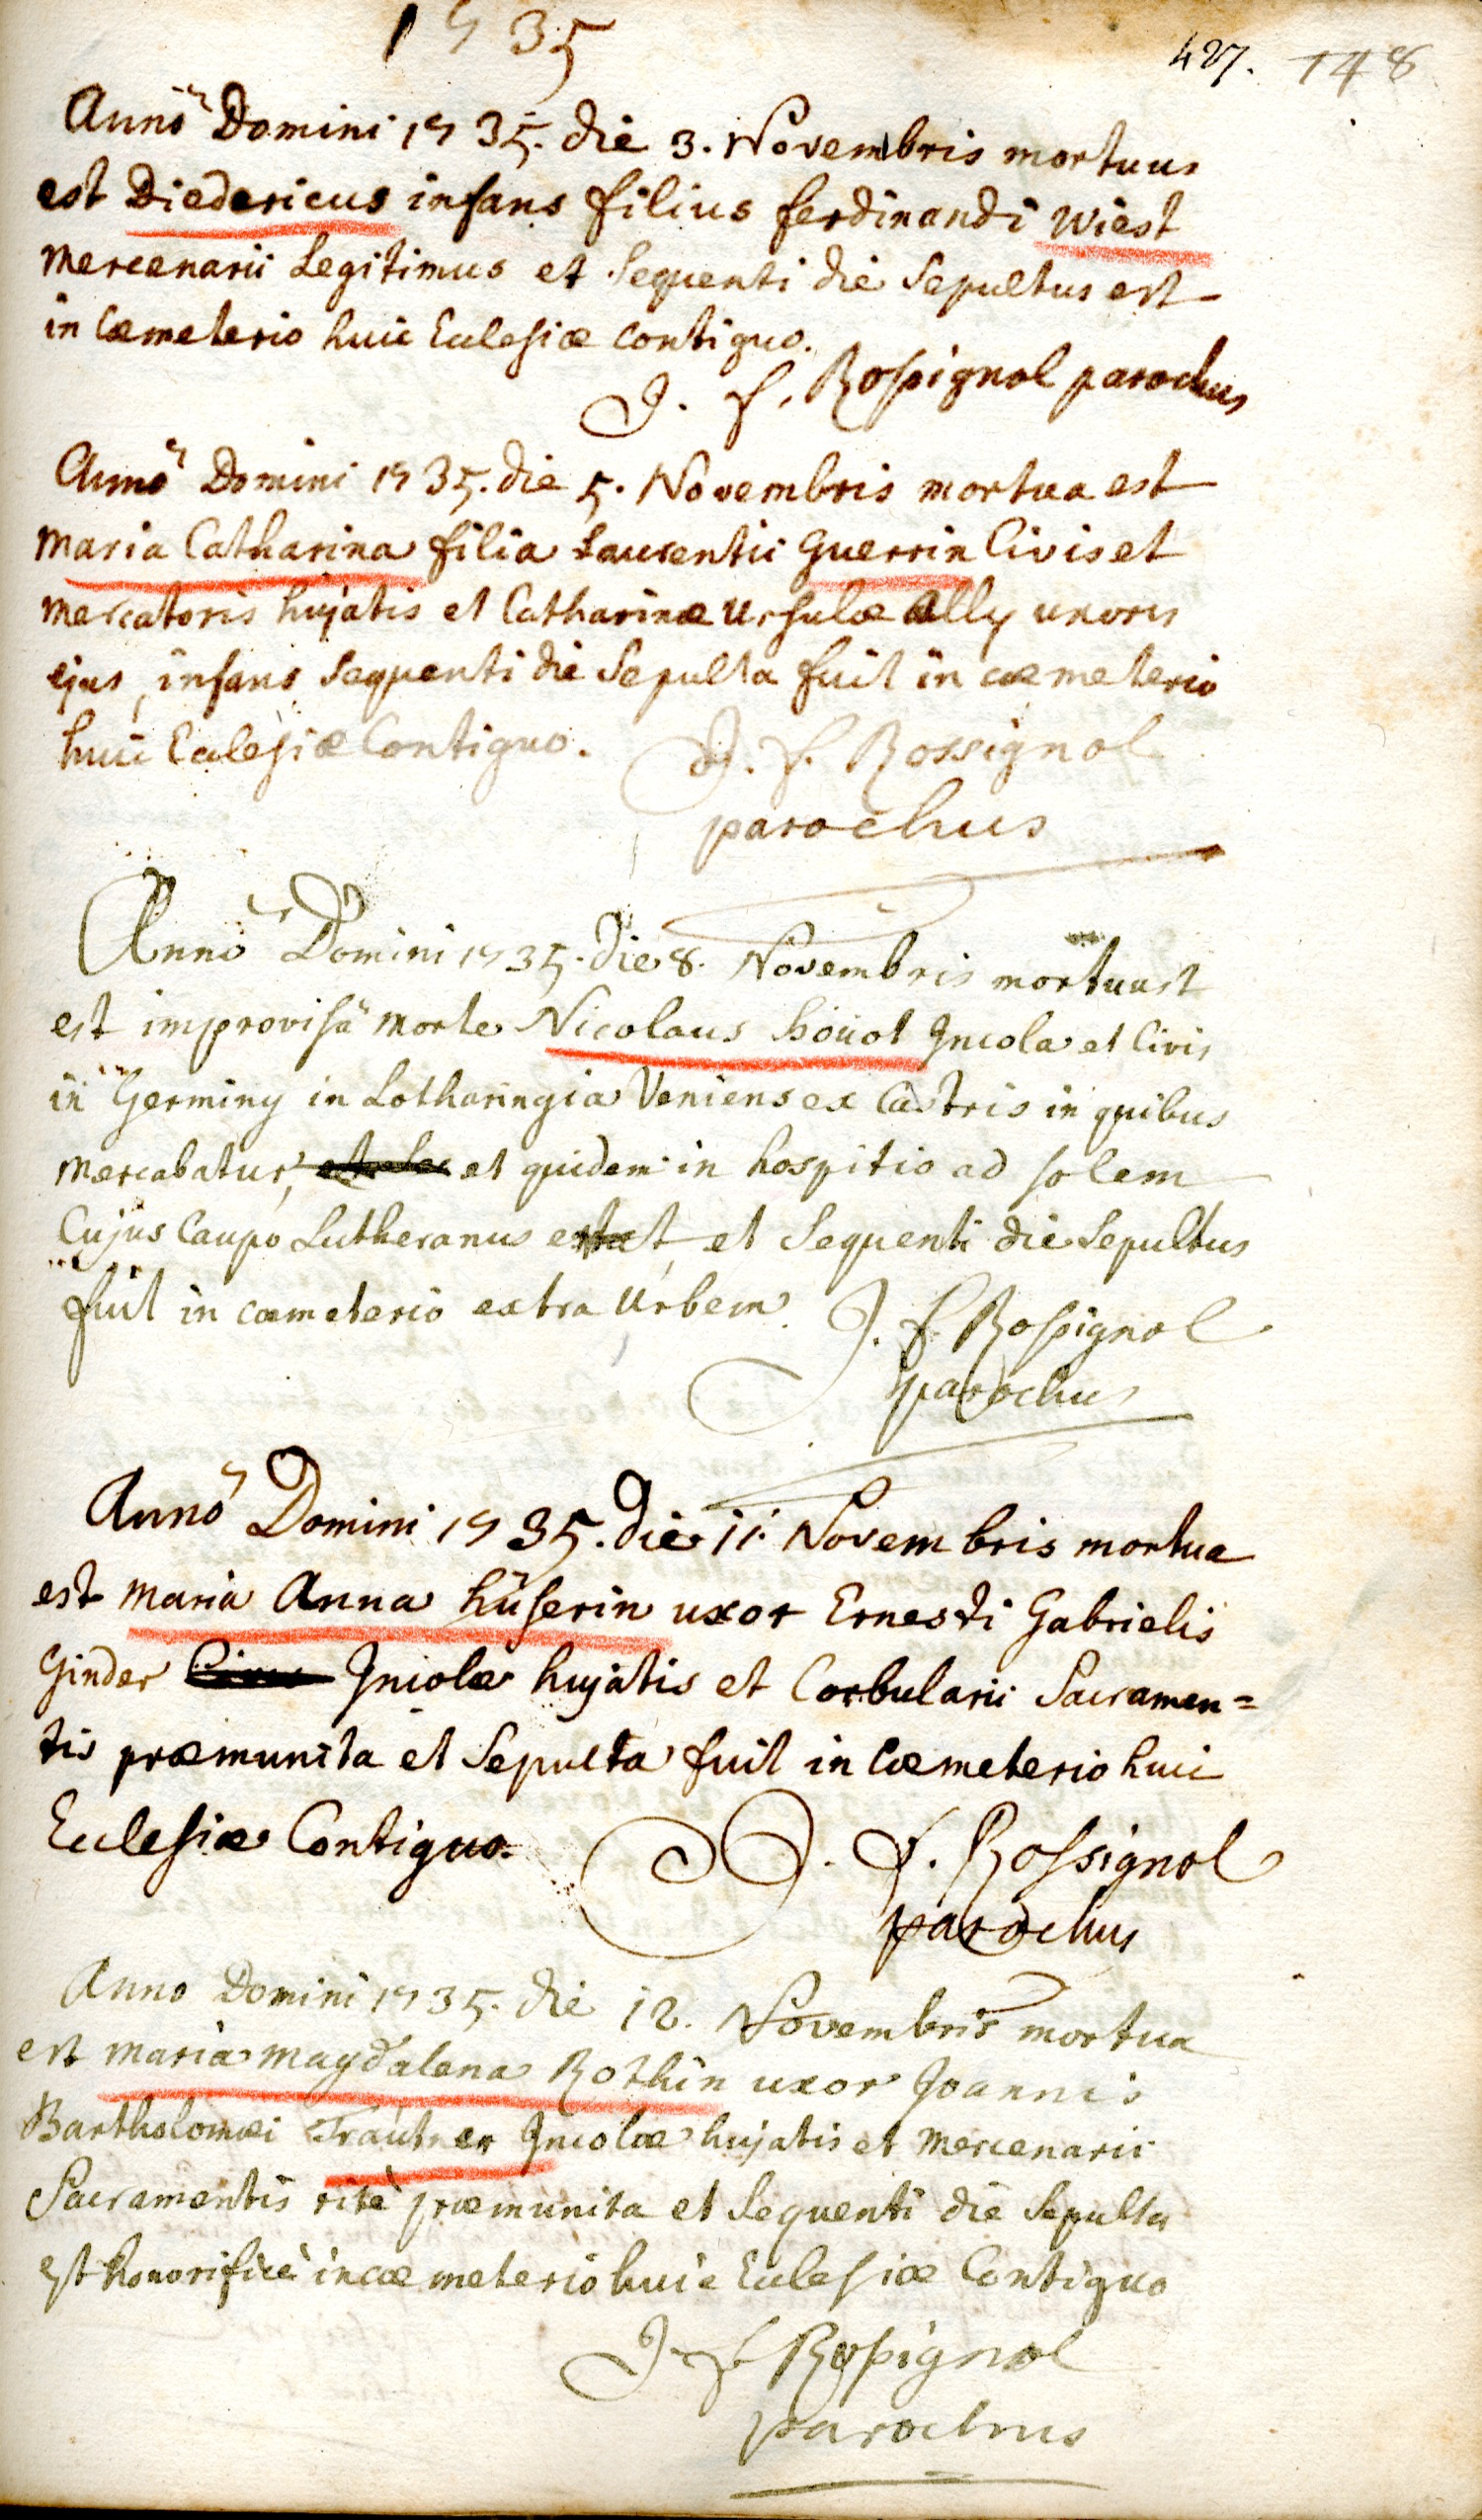 1735
427. 148
Anno Domini 1735. die 3. Novembris mortuus
est Diedericus infans filius ferdinandi Wiest
mercenarii Legitimus et sequenti die Sepultus est
in Cæmeterio huic Ecclesiæ contiguo.
J. f. Rossignol parochus
Anno Domini 1735. die 5. Novembris mortua est
Maria Catharina filia Laurentii Guerrin Civis et
mercatoris hujatis et Catharinæ Ursulæ Olly uxoris
ejus, infans sequenti die Sepulta fuit in cæmeterio
huic Ecclesiæ Contiguo. J. f. Rossignol
parochus
Anno Domini 1735. die 8. Novembris mortuus
est improvisa morte Nicolaus hoüot Incola et Civis
in Germiny in Lotharingia Veniens ex Castris in quibus
mercabatur, et quidem in hospitio ad solem
Cujus Caupo Lutheranus est et sequenti die Sepultus
fuit in cæmeterio extra Urbem. J. f. Rossignol
parochus
Anno Domini 1735. die 11. Novembris mortua
est Maria Anna hüserin uxor Ernesti Gabrielis
Ginder Incolæ hujatis et Corbularii Sacramen=
tis præmunita et Sepulta fuit in Cæmeterio huic
Ecclesiæ Contiguo. J. f. Rossignol
parochus
Anno Domini 1735. die 12. Novembris mortua
est Maria magdalena Rothin uxor Joannis
Bartholomæi Traütner Incolæ hujatis et mercenarii
Sacramentis rite præmunita et sequenti die Sepulta
est honorifice in cæmeterio huic Ecclesiæ Contiguo
J. f. Rossignol
parochus